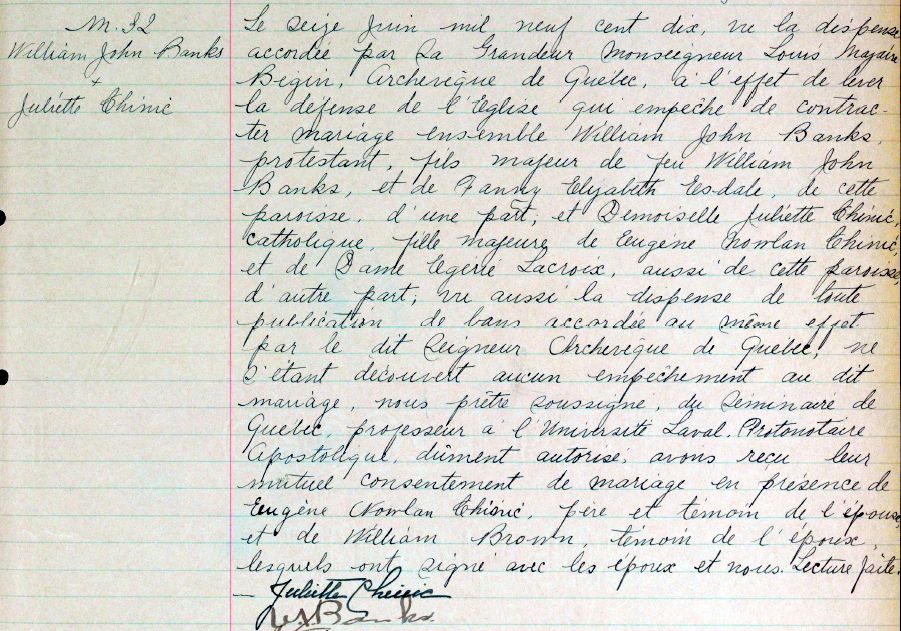 M. 52
William John Banks
+
Juliette Chinic
Le seize Juin mil neuf cent dix, vu la dispense
accordée par Sa Grandeur Monseigneur Louis Nazaire
Bégin, Archevêque de Québec, à l'effet de lever
la défense de l'Eglise qui empêche de contrac-
ter mariage ensemble William John Banks,
protestant, fils majeur de feu William John
Banks, et de Fanny Elizabeth Esdale, de cette
paroisse, d'une part; et Demoiselle Juliette Chinic,
catholique, fille majeure de Eugène Nowlan Chinic,
et de Dame Egérie Lacroix, aussi de cette paroisse,
d'autre part; vu aussi la dispense de toute
publication de bans accordée au même effet
par le dit Seigneur Archevêque de Québec; ne
s'étant découvert aucun empêchement au dit
mariage, nous prêtre soussigné, du Séminaire de
Québec, professeur à l'Université Laval, Protonotaire
Apostolique, dûment autorisé, avons reçu leur
mutuel consentement de mariage en présence de
Eugène Nowlan Chinic, père et témoin de l'épouse,
et de William Brown, témoin de l'époux,
lesquels ont signé avec les époux et nous. Lecture faite.
— Juliette Chinic
W J Banks